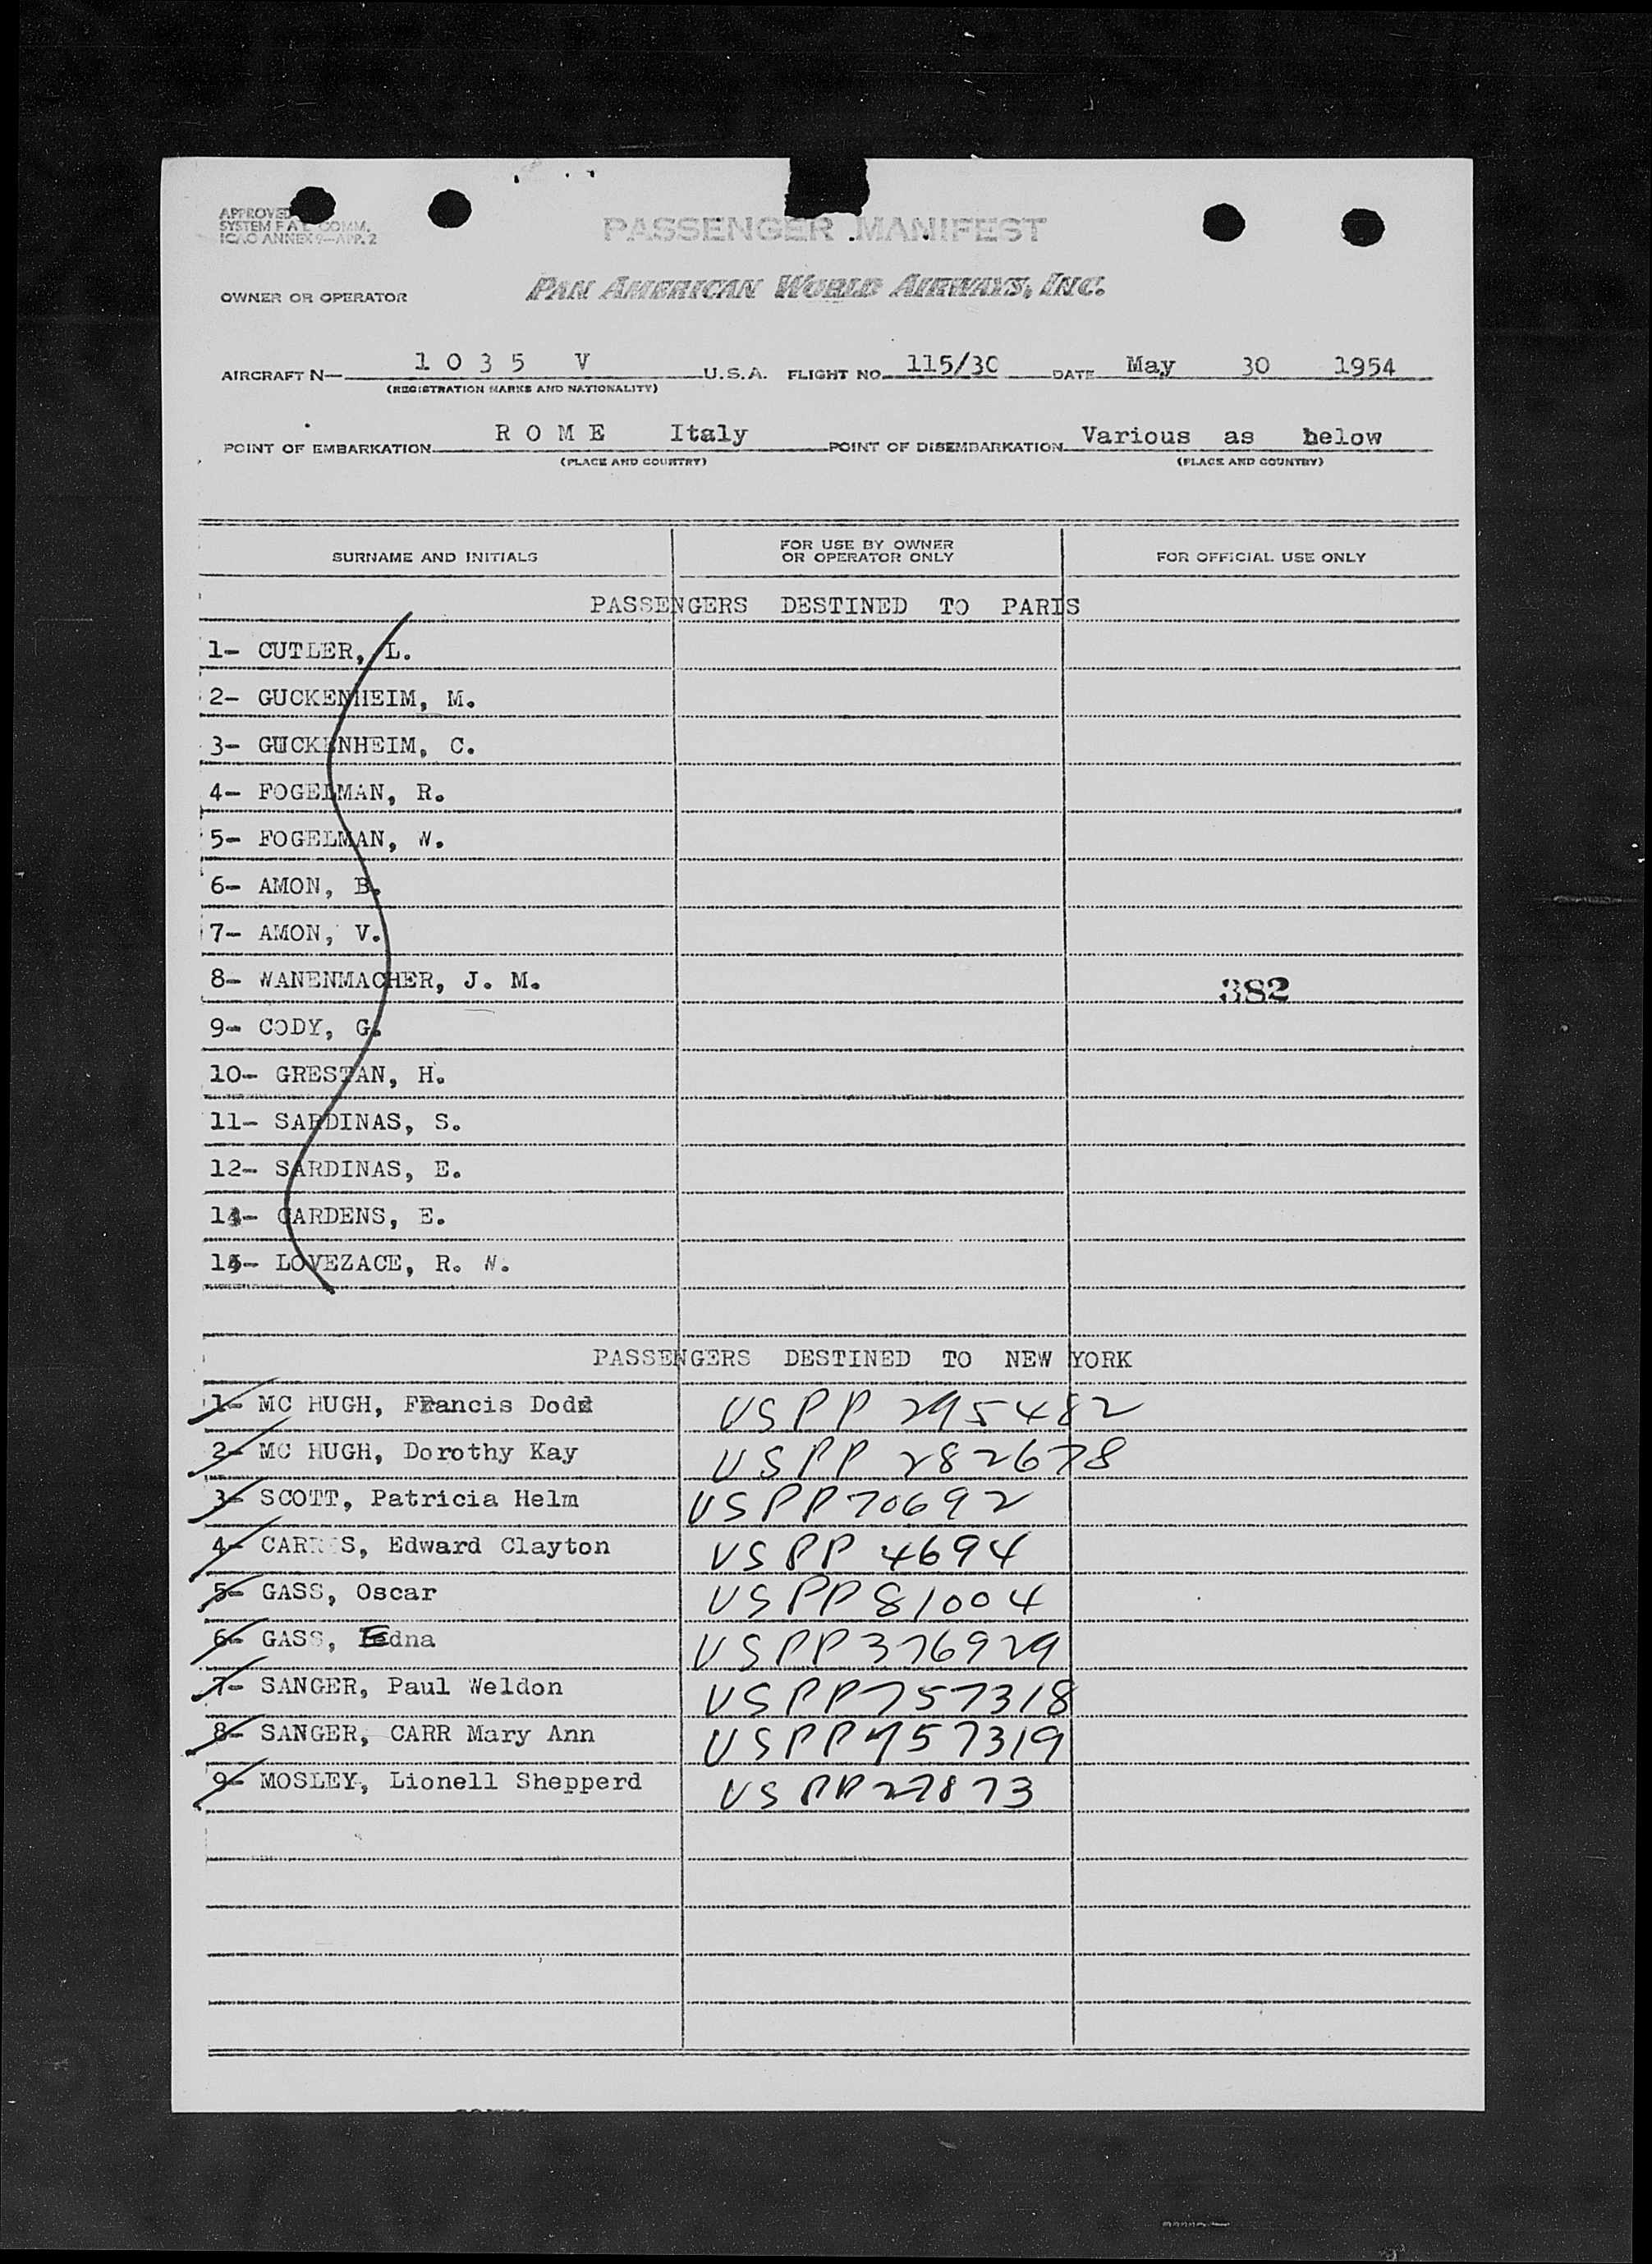 APPROVED
SYSTEM F A L COMM.
ICAO ANNEX 9—APP. 2
PASSENGER MANIFEST
OWNER OR OPERATOR PAN AMERICAN WORLD AIRWAYS, INC.
AIRCRAFT N— 1 0 3 5 V U.S.A. FLIGHT NO. 115/30 DATE May 30 1954
(REGISTRATION MARKS AND NATIONALITY)
POINT OF EMBARKATION R O M E Italy POINT OF DISEMBARKATION Various as below
(PLACE AND COUNTRY) (PLACE AND COUNTRY)
SURNAME AND INITIALS FOR USE BY OWNER OR OPERATOR ONLY FOR OFFICIAL USE ONLY
PASSENGERS DESTINED TO PARIS
1- CUTLER, L.
2- GUCKENHEIM, M.
3- GUCKENHEIM, C.
4- FOGELMAN, R.
5- FOGELMAN, W.
6- AMON, B.
7- AMON, V.
8- WANENMACHER, J. M. 382
9- CODY, G.
10- GRESTAN, H.
11- SARDINAS, S.
12- SARDINAS, E.
GARDENS, E.
LOVEZACE, R. W.
PASSENGERS DESTINED TO NEW YORK
1- MC HUGH, Francis Dodd USPP 295482
2- MC HUGH, Dorothy Kay USPP 282678
3- SCOTT, Patricia Helm USPP 70692
4- Edward Clayton USPP 4694
5- GASS, Oscar USPP 81004
6- GASS, Edna USPP 376929
7- SANGER, Paul Weldon USPP 757318
8- SANGER, CARR Mary Ann USPP 757319
9- MOSLEY, Lionell Shepperd USPP 27873